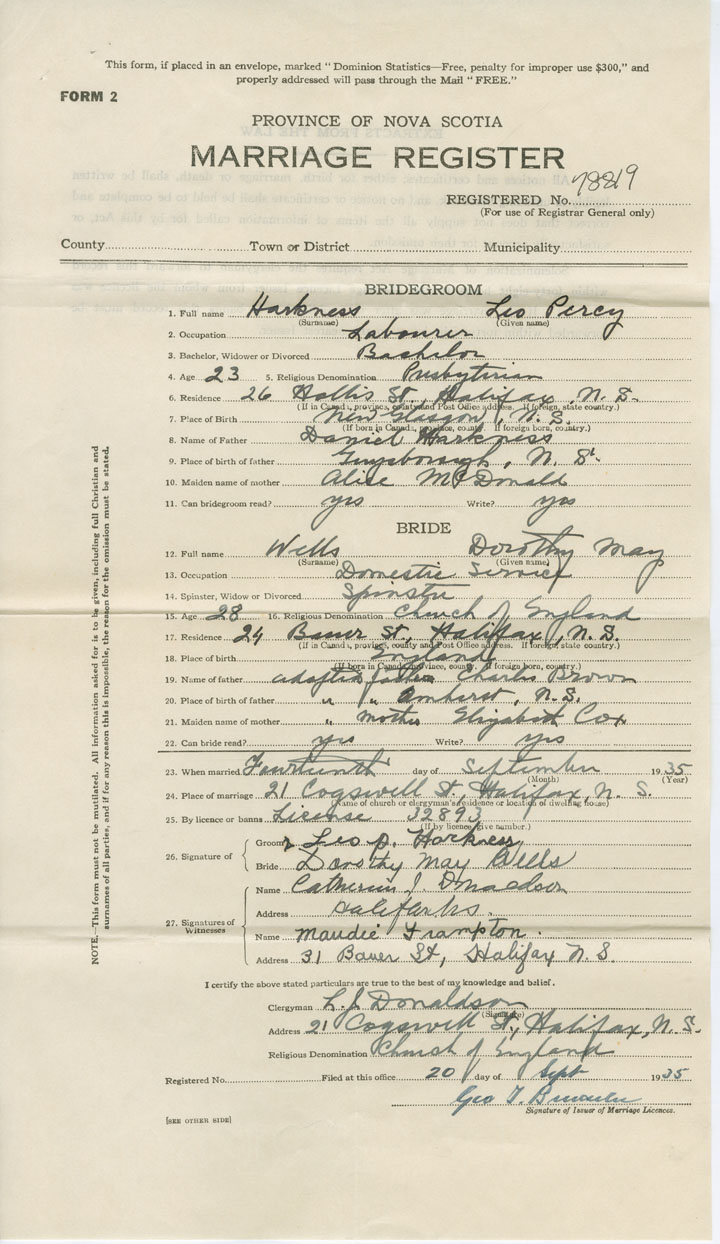 This form, if placed in an envelope, marked "Dominion Statistics—Free, penalty for improper use $300," and
properly addressed will pass through the Mail "FREE."
FORM 2
PROVINCE OF NOVA SCOTIA
MARRIAGE REGISTER
REGISTERED No. 78819
(For use of Registrar General only)
County Town or District Municipality
BRIDEGROOM
1. Full name Harkness Leo Percy
(Surname) (Given name)
2. Occupation Labourer
3. Bachelor, Widower or Divorced Bachelor
4. Age 23 5. Religious Denomination Presbyterian
6. Residence 26 Hollis St., Halifax, N. S.
(If in Canada, province, county and Post Office address. If foreign, state country.)
7. Place of Birth New Glasgow, N. S.
(If born in Canada, province, county. If foreign born, country.)
8. Name of Father Daniel Harkness
9. Place of birth of father Guysborough, N. S.
10. Maiden name of mother Alice McDonald
11. Can bridegroom read? yes Write? yes
BRIDE
12. Full name Wells Dorothy May
(Surname) (Given name)
13. Occupation Domestic Service
14. Spinster, Widow or Divorced Spinster
15. Age 28 16. Religious Denomination Church of England
17. Residence 24 Bauer St., Halifax, N. S.
(If in Canada, province, county and Post Office address. If foreign, state country.)
18. Place of birth England
(If born in Canada, province, county. If foreign born, country.)
19. Name of father adopted father Charles Brown
20. Place of birth of father " " Amherst, N. S.
21. Maiden name of mother " mother Elizabeth Cox
22. Can bride read? yes Write? yes
23. When married Fourteenth day of September 1935
(Month) (Year)
24. Place of marriage 21 Cogswell St., Halifax, N. S.
(Name of church or clergyman's residence or location of dwelling house)
25. By licence or banns License 32893
(If by licence give number.)
26. Signature of Groom Leo P. Harkness
Bride Dorothy May Wells
27. Signatures of Witnesses
Name Catherine J. Donaldson
Address Halifax N.S.
Name Maudie Frampton
Address 31 Bauer St, Halifax N. S.
I certify the above stated particulars are true to the best of my knowledge and belief.
Clergyman L. J. Donaldson
(Signature)
Address 21 Cogswell St., Halifax, N. S.
Religious Denomination Church of England
Registered No. Filed at this office 20 day of Sept 1935
Geo T.
Signature of Issuer of Marriage Licences.
[SEE OTHER SIDE]
NOTE.—This form must not be mutilated. All information asked for is to be given, including full Christian and
surnames of all parties, and if for any reason this is impossible, the reason for the omission must be stated.